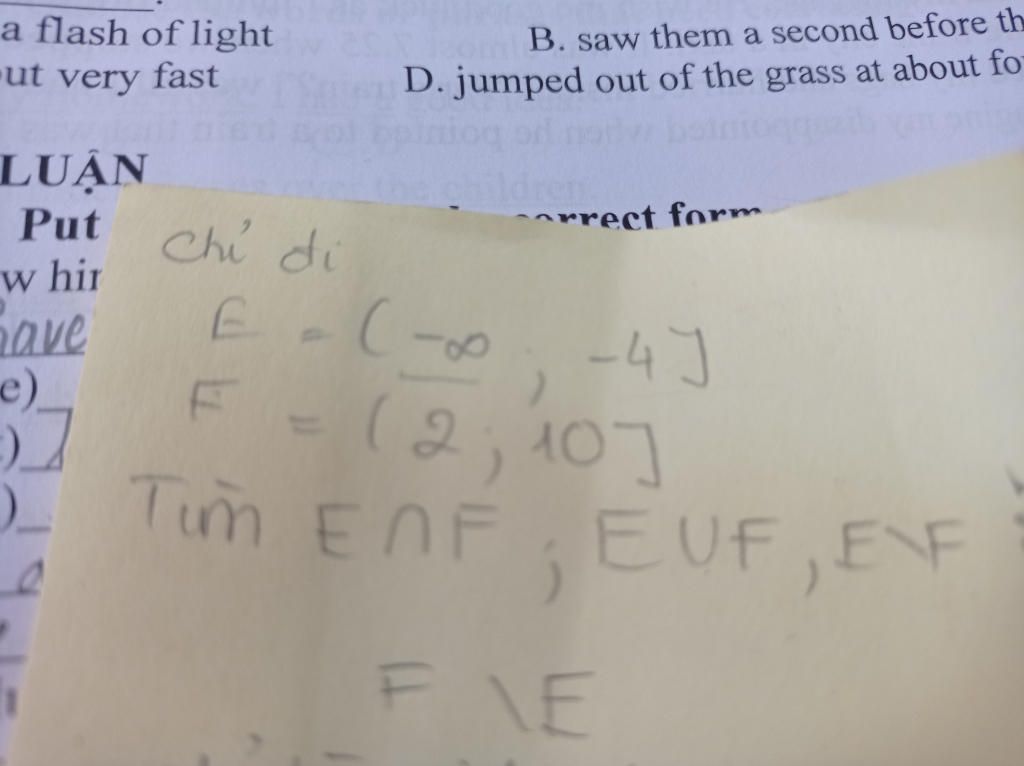 a flash of light B. saw them a second before th
ut very fast D. jumped out of the grass at about fo
LUẬN
Put orrect form
w hin
have
e)
Chỉ đi
E = (-∞ ; -4]
F = (2 ; 10]
Tìm E ∩ F ; E ∪ F , E \ F
F \ E